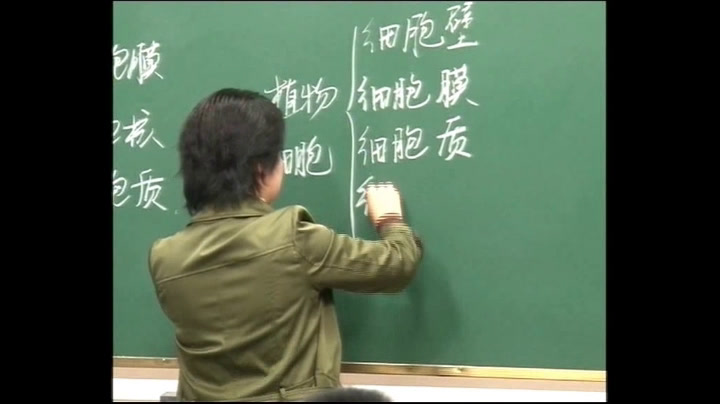 胞膜
核
胞质
植物
细胞
细胞壁
细胞膜
细胞质